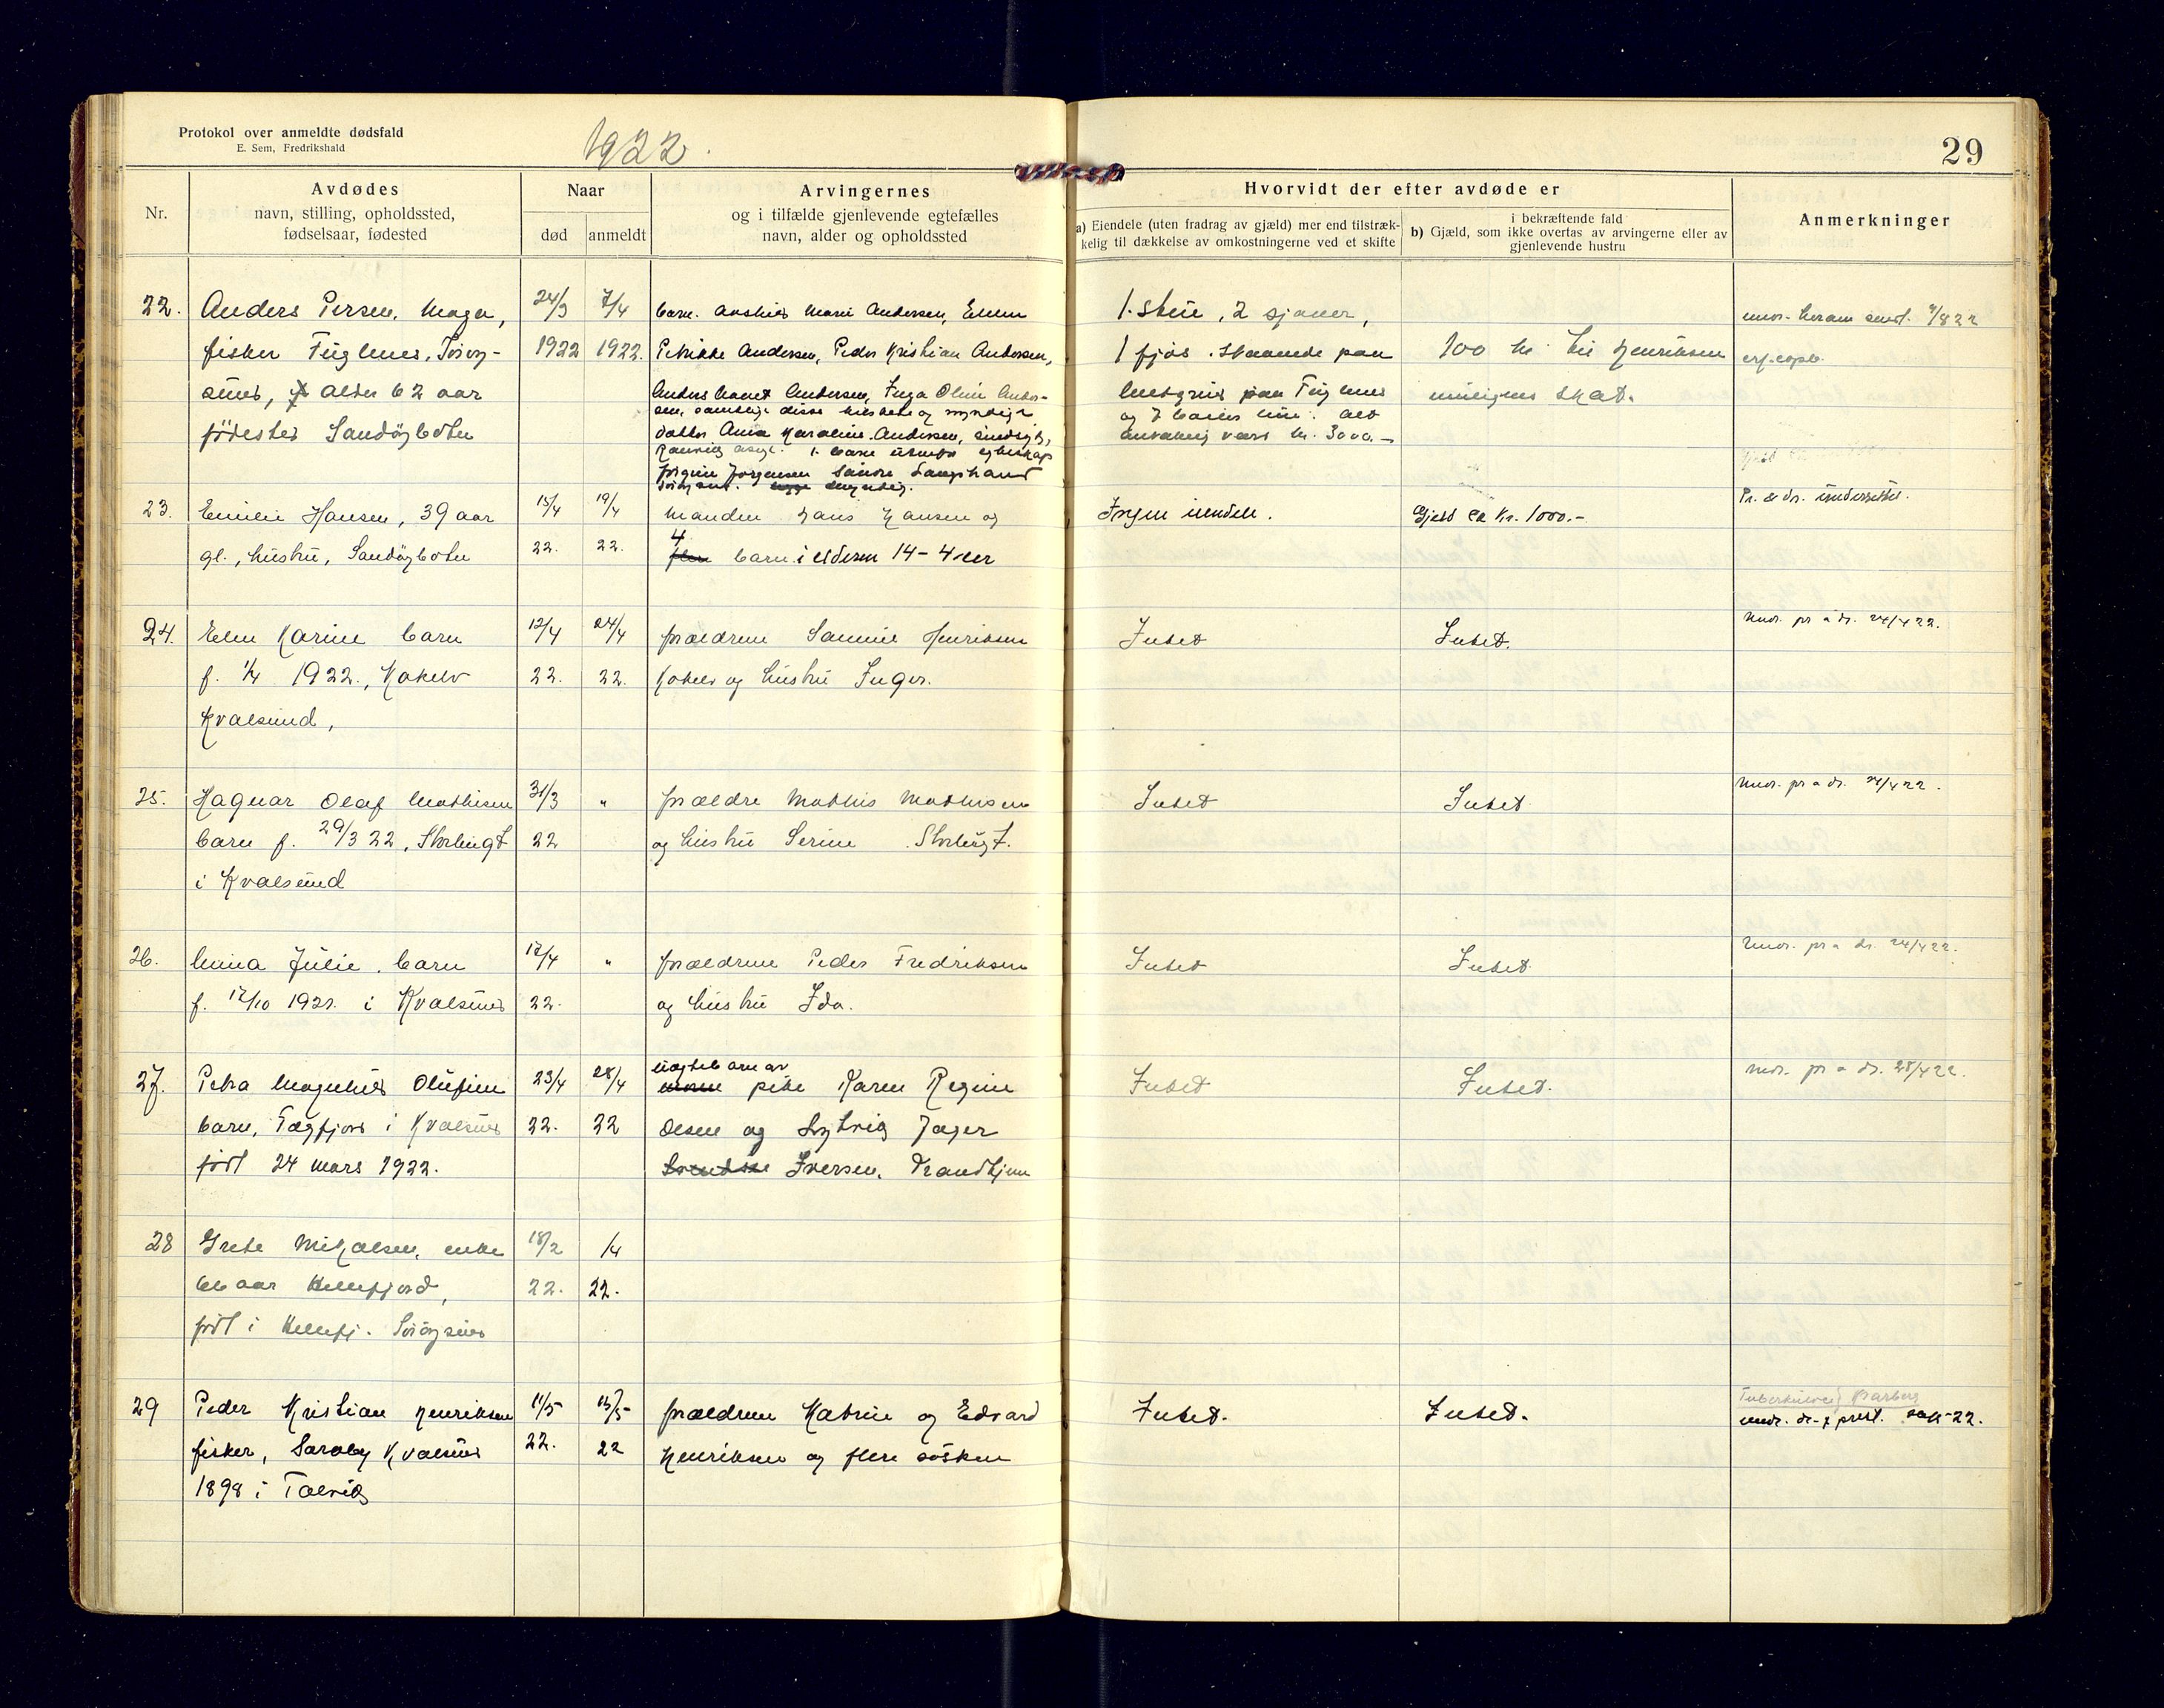 Protokol over anmeldte dødsfald
E. Sem, Fredrikshald
1922.
29
Nr.
Avdødes
navn, stilling, opholdssted,
fødselsaar, fødested
Naar
død
anmeldt
Arvingernes
og i tilfælde gjenlevende egtefælles
navn, alder og opholdssted
Hvorvidt der efter avdøde er
a) Eiendele (uten fradrag av gjæld) mer end tilstræk-
kelig til dækkelse av omkostningerne ved et skifte
i bekræftende fald
b) Gjæld, som ikke overtas av arvingerne eller av
gjenlevende hustru
Anmerkninger
22. Anders Persen, 24/3 7/4 barn. Marie Andersen, 1. 2 sjøaer,
fisker Fuglenes, Sörøy- 1922 1922. Petrikke Andersen, Peder Kristian Andersen, 1 fjøs. 100 kr. til Henriksen
sund, alder 62 aar Anders Andersen, Inga Oline Ander- paa Fuglenes skat.
sen, samtlige disse og myndige og
födested Sandöybotn datter Anna Karoline Andersen, kr. 3000.-
1. barn
Jörgine Jörgensen Söndre
myndig.
23. Emilie Hansen, 39 aar 15/4 19/4 Manden Hans Hansen og Ingen eiendele. Gjeld ca kr. 1000.- Pr. & dr. underrettet.
gl., hustru, Sandöybotn 22. 22. 4 barn i alderen 14 - 4 aar
24. Elen Karine barn 12/4 24/4 forældrene Samuel Henriksen Intet Intet. undr. pr a dr. 24/4 22.
f. 1/4 1922., Kokelv 22. 22. Kokelv og hustru Inger.
Kvalsund,
25. Hagnar Olaf Mathisen 31/3 " forældre Mathis Mathisen Intet Intet. undr. pr a dr. 24/4 22.
barn f. 29/3 22, Storbugt 22 og hustru Serine Storbugt.
i Kvalsund
26. Minna Julie. barn 12/4 " forældrene Peder Fredriksen Intet Intet. undr. pr a dr. 24/4 22.
f. 12/10 1921. i Kvalsund 22. og hustru Ida.
27. Petra Magnhild Olufine 23/4 28/4 uegte barn av pike Karen Regine Intet Intet. undr. pr a dr. 28/4 22.
barn, i Kvalsund 22. 22 Olsen og Jager
född 24 mars 1922. Iversen. Trondhjem
28 Grete Mikalsen, enke 18/2 /4
66 aar Kellefjord, 22. 22.
född i Kellefj. Sörøysund
29 Peder Kristian Henriksen 11/5 15/5 forældrene Katrine og Edvard Intet. Intet. Tuberkulose
fisker, Saraby Kvalsund 22. 22 Henriksen og flere søsken undr. dr. & prest. 22.
1898 i Talvik